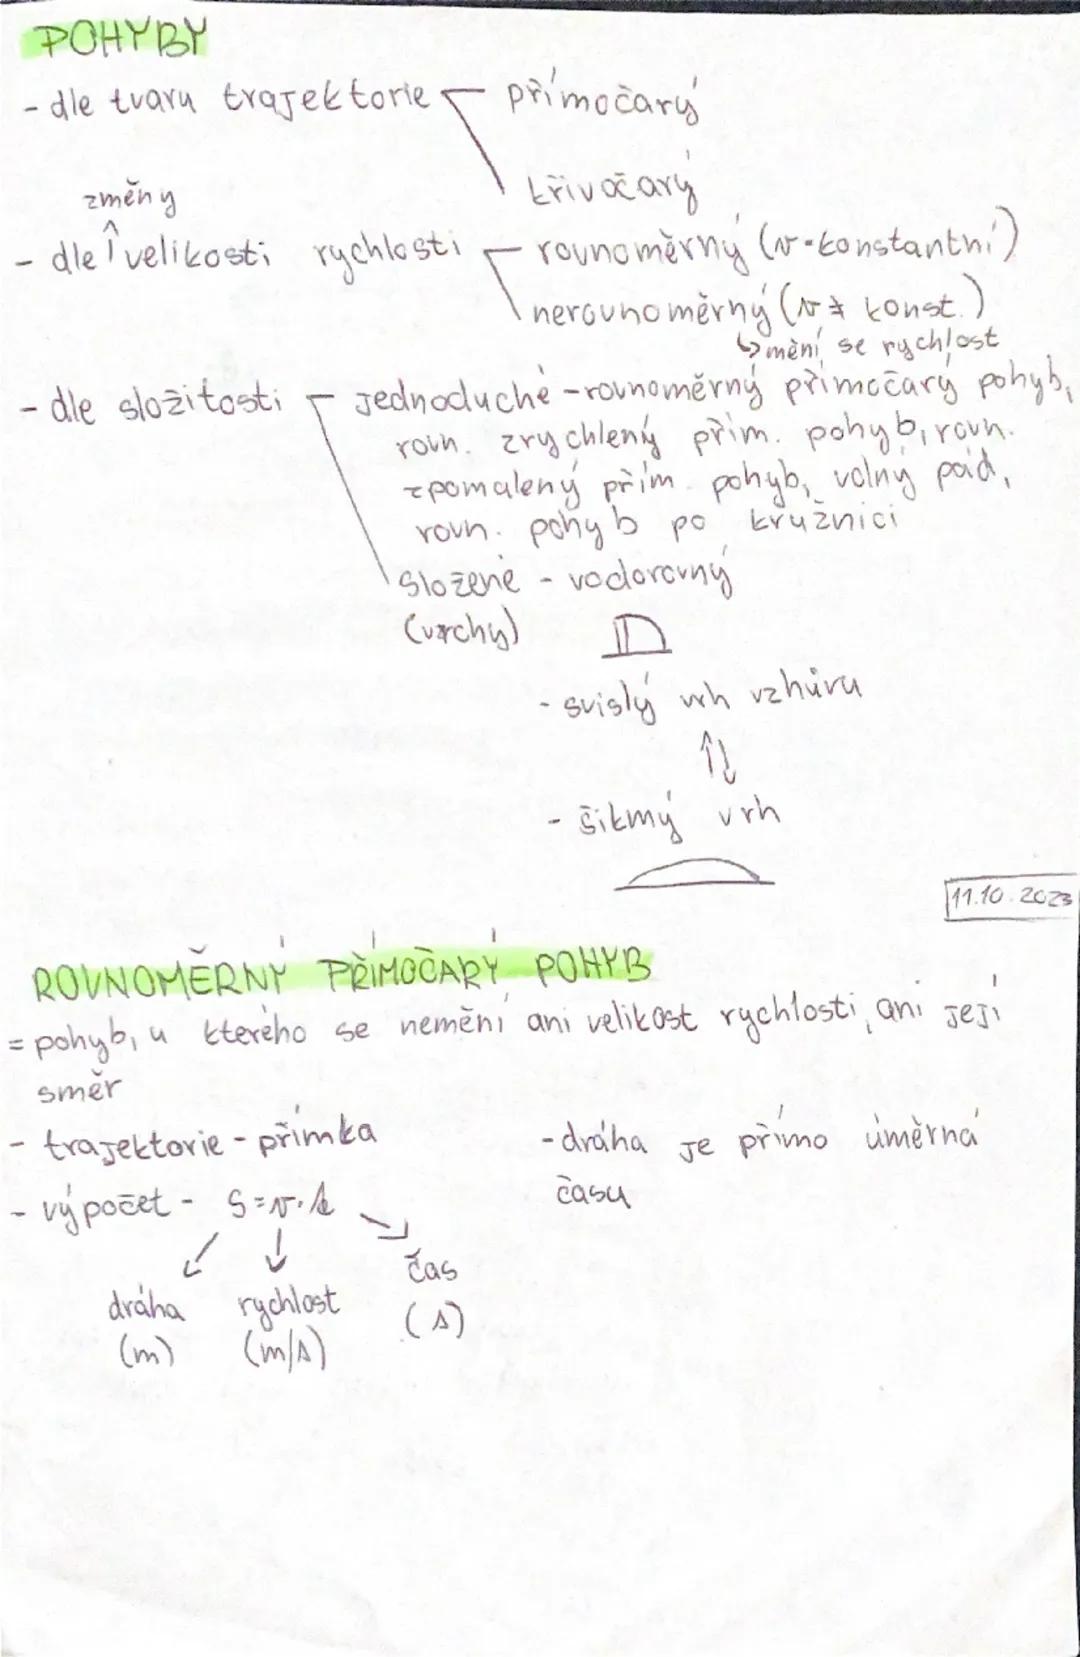 POHYBY
- dle tvaru trajektorie - přímočarý
křivočarý
změny
- dle velikosti rychlosti - rovnoměrný (v-konstantní)
nerovnoměrný (v ≠ konst.)
↳ mění se rychlost
- dle složitosti - jednoduché - rovnoměrný přímočarý pohyb,
rovn. zrychlený přím. pohyb, rovn.
zpomalený přím. pohyb, volný pád,
rovn. pohyb po kružnici
složené - vodorovný
(vrchy)
- svislý vrh vzhůru
↑↓
- šikmý vrh
11.10.2023
ROVNOMĚRNÝ PŘÍMOČARÝ POHYB
= pohyb, u kterého se nemění ani velikost rychlosti, ani její
směr
- trajektorie - přímka
- dráha je přímo úměrná
času
- výpočet - s = v · t
↙ ↓ ↘
dráha rychlost čas
(m) (m/s) (s)